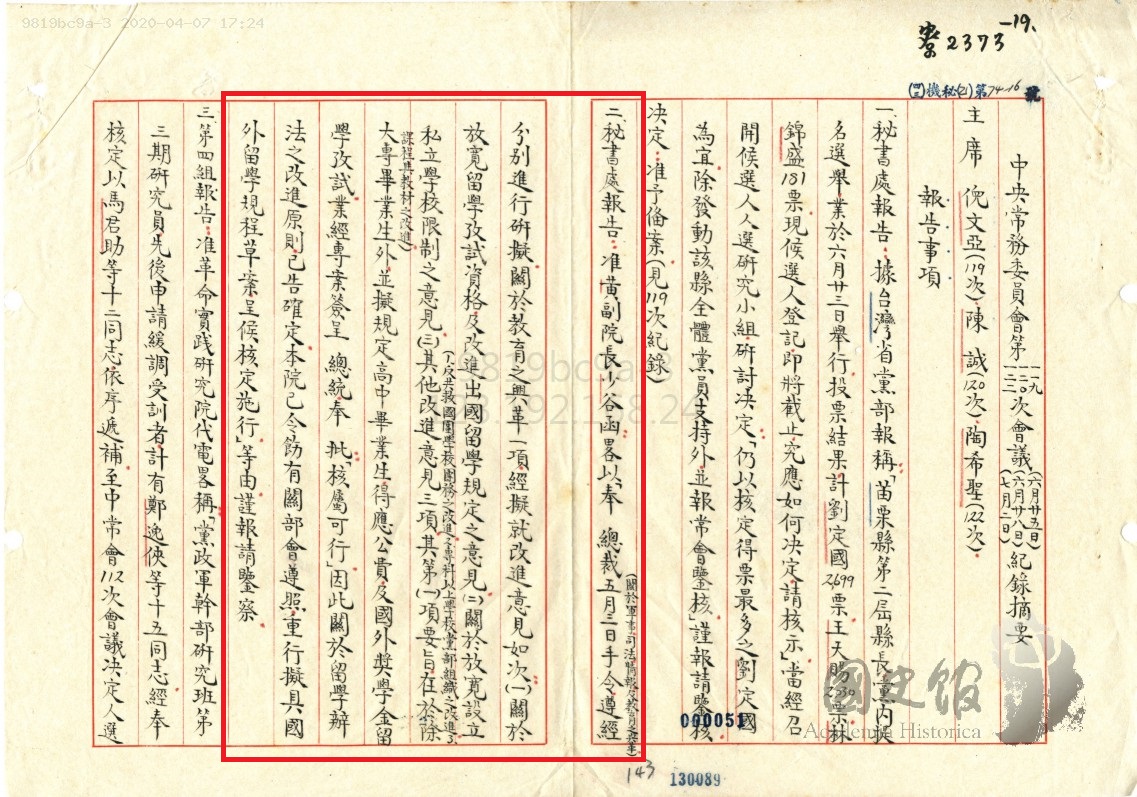 9819bc9a-3 2020-04-07 17:24
寮2373-19.
(四三)機秘(乙)第74-16號
中央常務委員會第一一九 一二〇 一二二次會議(六月廿五日)(六月廿八日)(七月二日)紀錄摘要
主席 倪文亞(119次)陳 誠(120次)陶希聖(122次)
報告事項
一、秘書處報告:據台灣省黨部報稱「苗栗縣第二屆縣長黨內提
名選舉業於六月廿三日舉行投票結果計劉定國2,699票王天賜票林
錦盛181票現候選人登記即將截止究應如何決定請核示」當經召
開候選人人選研究小組研討決定「仍以核定得票最多之劉定國
為宜除發動該縣全體黨員支持外並報常會鑒核」謹報請鑒核
決定:准予備案(見119次紀錄)
二、秘書處報告:准黃副院長少谷函畧以奉 總裁五月三日手令遵經
(關於軍事司法財經及教育之興革)
分別進行研擬關於教育之興革一項經擬就改進意見如次(一)關於
放寬留學考試資格及改進出國留學規定之意見(二)關於放寬設立
私立學校限制之意見(三)其他改進意見三項
(1.反共救國團學校團務之改進2.專科以上學校黨部組織之改進3.課程與教材之改進)
其第(一)項要旨在於除
大專畢業生外並擬規定高中畢業生得應公費及國外獎學金留
學考試業經專案簽呈 總統奉 批「核屬可行」因此關於留學辦
法之改進原則已告確定本院已令飭有關部會遵照重行擬具國
外留學規程草案呈候核定施行」等由謹報請鑒察
三、第四組報告:准革命實踐研究院代電畧稱「黨政軍幹部研究班第
三期研究員先後申請緩調受訓者計有鄭逸俠等十五同志經奉
核定以馬君助等十二同志依序遞補至中常會112次會議決定人選
000051
143
130089
9819bc9a-3
國史館
Academia Historica